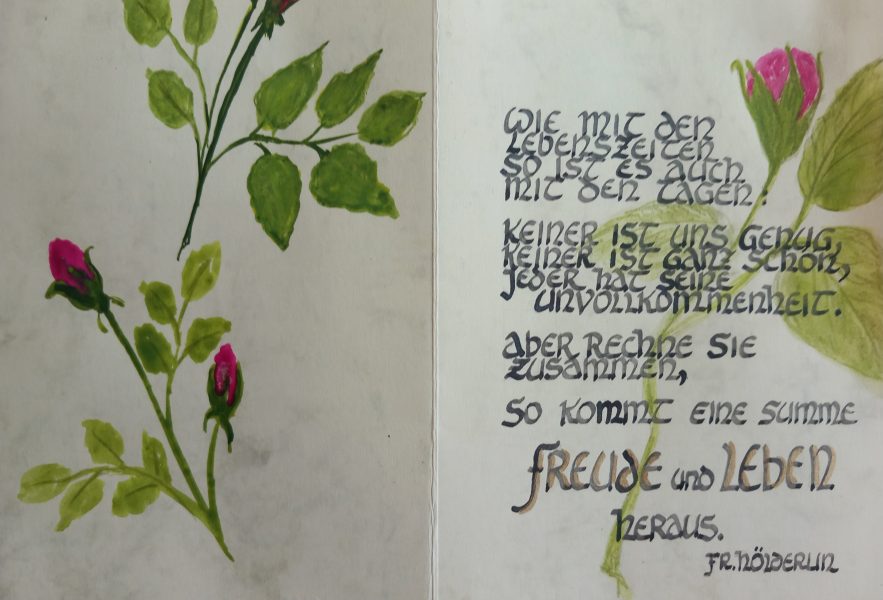 WIE MIT DEN
LEBENSZEITEN
SO IST ES AUCH
MIT DEN TAGEN:
KEINER IST UNS GENUG,
KEINER IST GANZ SCHÖN,
JEDER HAT SEINE
UNVOLLKOMMENHEIT.
ABER RECHNE SIE
ZUSAMMEN,
SO KOMMT EINE SUMME
FREUDE UND LEBEN
HERAUS.
FR. HÖLDERLIN